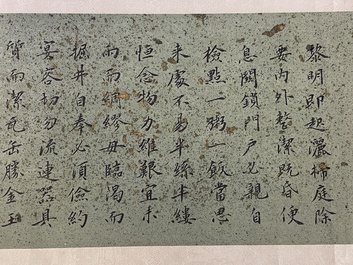 黎明即起灑掃庭除
要内外整潔既昏便
息關鎖門户必親自
檢點一粥一飯當思
來處不易半絲半縷
恒念物力維艱宜未
雨而綢繆毋臨渴而
掘井自奉必須儉約
宴客切勿流連器具
質而潔瓦缶勝金玉